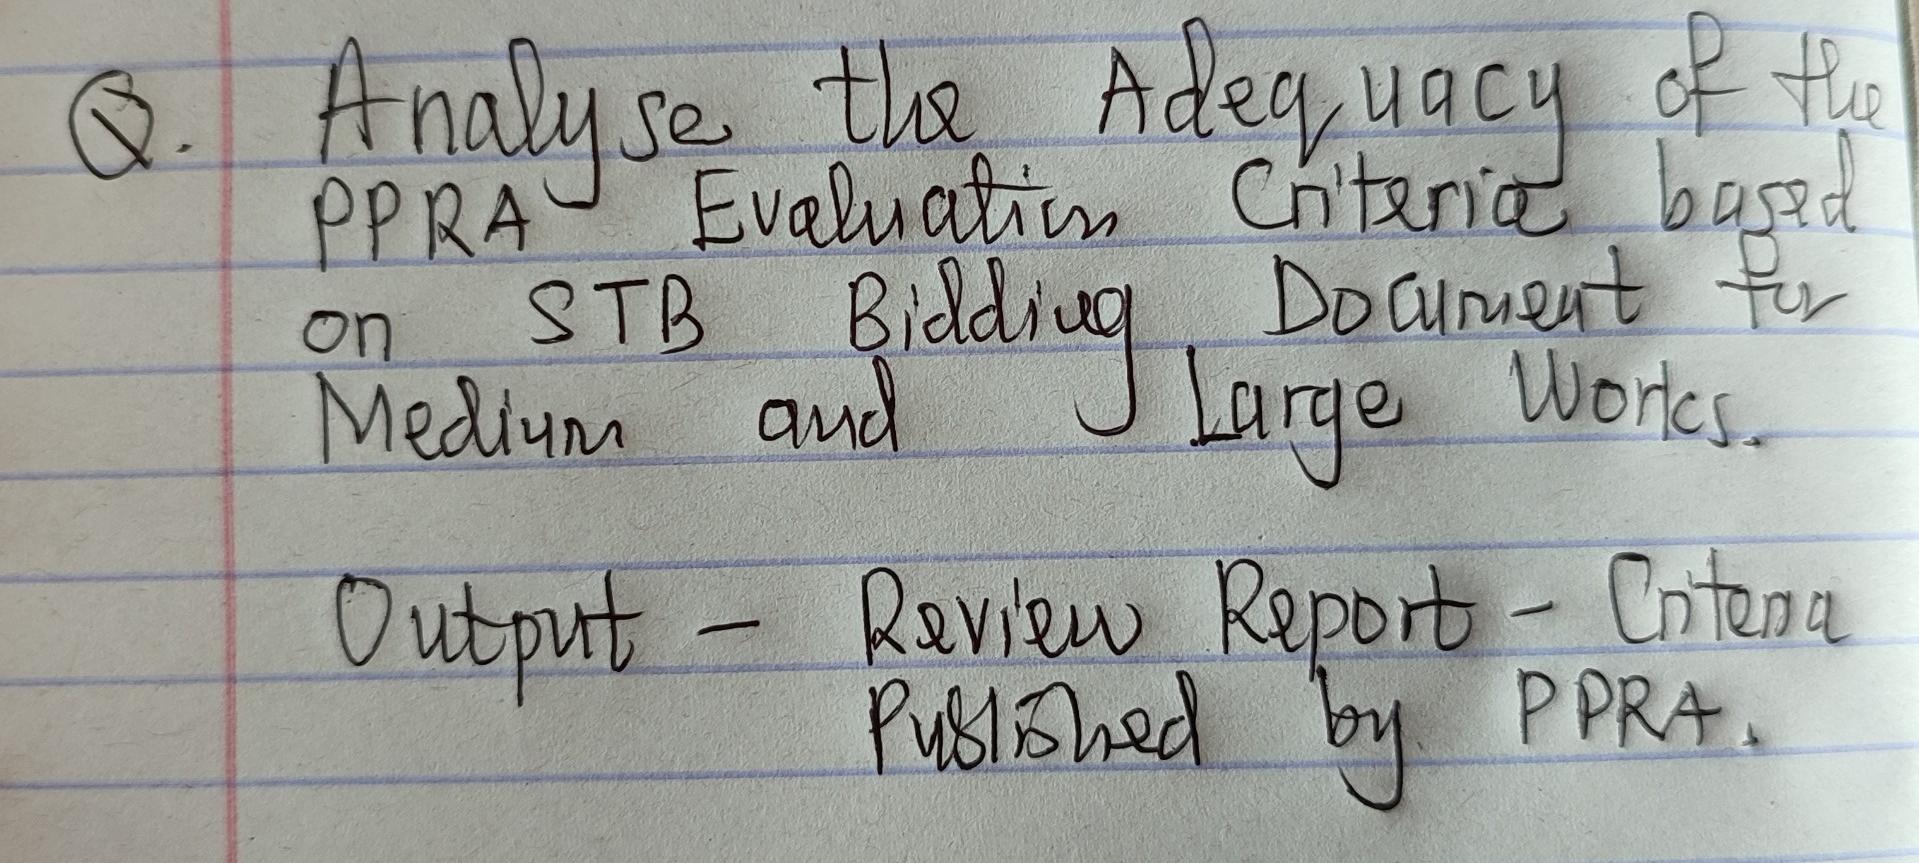 Q. Analyse the Adequacy of the
PPRA Evaluation Criteria based
on STB Bidding Document for
Medium and Large Works.
Output - Review Report - Criteria
Published by PPRA.